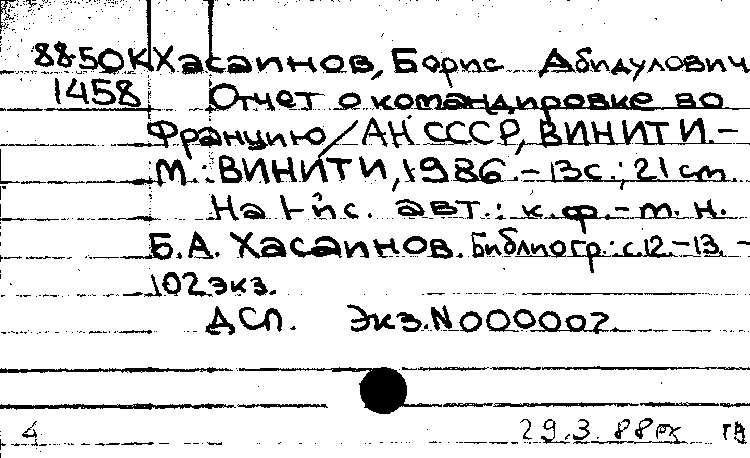 88-50К Хасаинов, Борис Абидулович
1458 Отчет о командировке во
Францию / АН СССР, ВИНИТИ. -
М.: ВИНИТИ, 1986. - 13с.; 21 cm
На 1-й с. авт.: к. ф. - м. н.
Б.А. Хасаинов. Библиогр.: с.12-13. -
102 экз.
ДСП. Экз. N 000007.
4 29.3.88